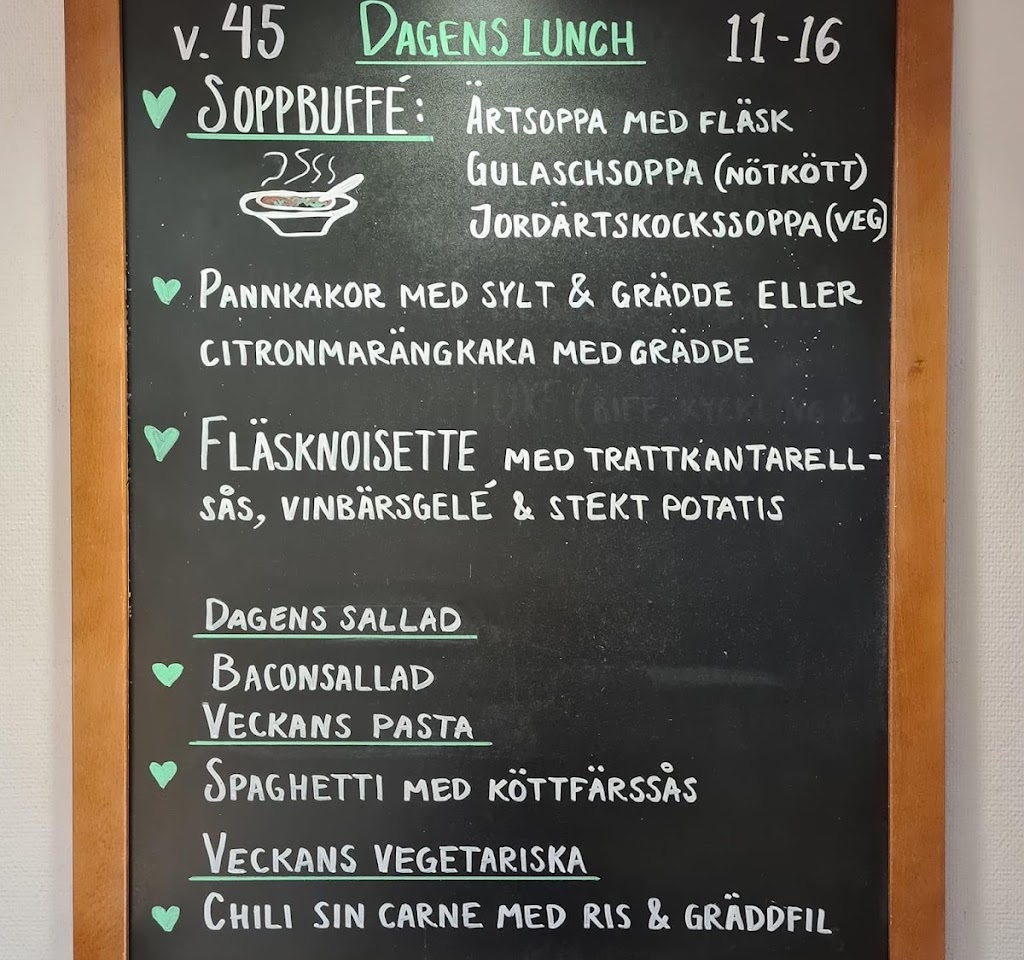 v. 45 DAGENS LUNCH 11-16
SOPPBUFFÉ: ÄRTSOPPA MED FLÄSK
GULASCHSOPPA (NÖTKÖTT)
JORDÄRTSKOCKSSOPPA (VEG)
PANNKAKOR MED SYLT & GRÄDDE ELLER
CITRONMARÄNGKAKA MED GRÄDDE
FLÄSKNOISETTE MED TRATTKANTARELL-
SÅS, VINBÄRSGELÉ & STEKT POTATIS
DAGENS SALLAD
BACONSALLAD
VECKANS PASTA
SPAGHETTI MED KÖTTFÄRSSÅS
VECKANS VEGETARISKA
CHILI SIN CARNE MED RIS & GRÄDDFIL